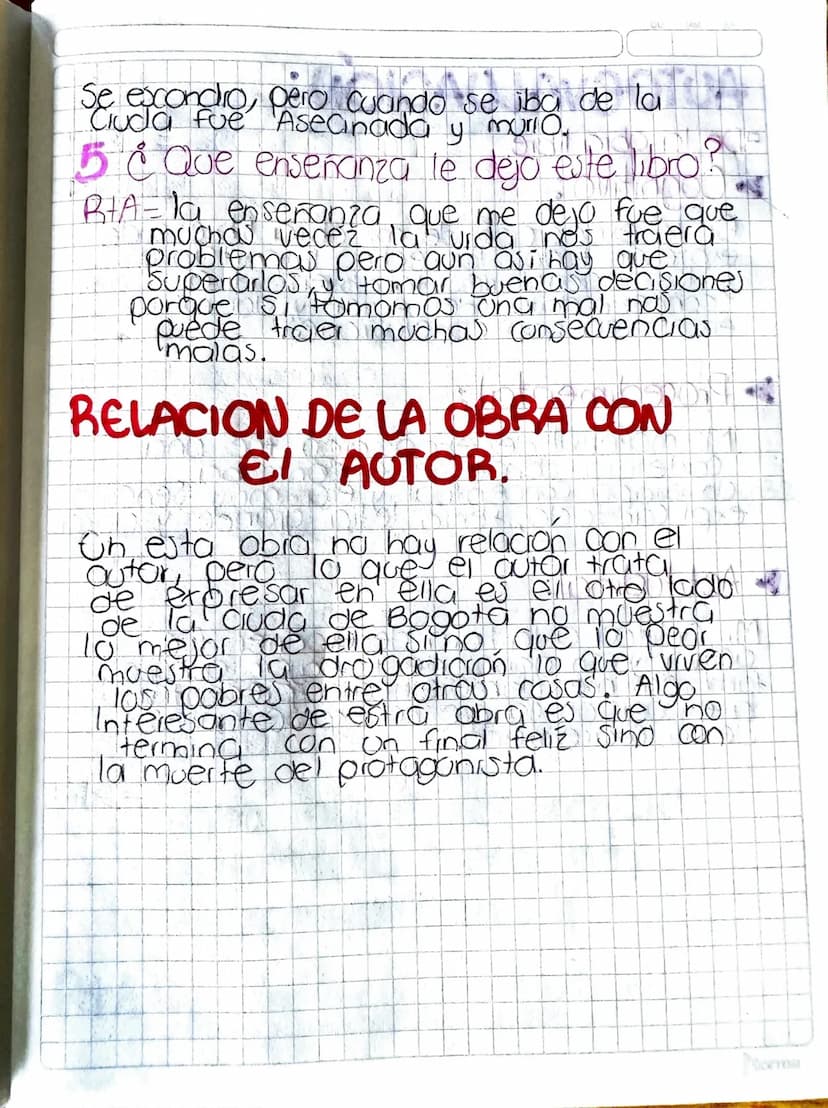 Se escondio, pero cuando se iba de la
Ciuda fue Asecinada y murio.
5 ¿ Que enseñanza le dejo este libro?
R+A= la enseñanza que me dejo fue que
muchas vecez la vida nos traera
problemas pero aun asi hay que
superarlos, y tomar buenas decisiones
porque si tomomos una mal nos
puede traer muchas consecuencias
malas.
RELACION DE LA OBRA CON
El AUTOR.
En esta obra no hay relación con el
autor, pero lo que el autor trata
de expresar en ella es ell otro lado
de la ciuda de Bogotá no muestra
lo mejor de ella sino que lo peor
muestra la drogadición lo que viven
los pobres entre otras cosas. Algo
Interesante de estra obra es que no
termina con un final feliz sino con
la muerte del protagonista.
Norma